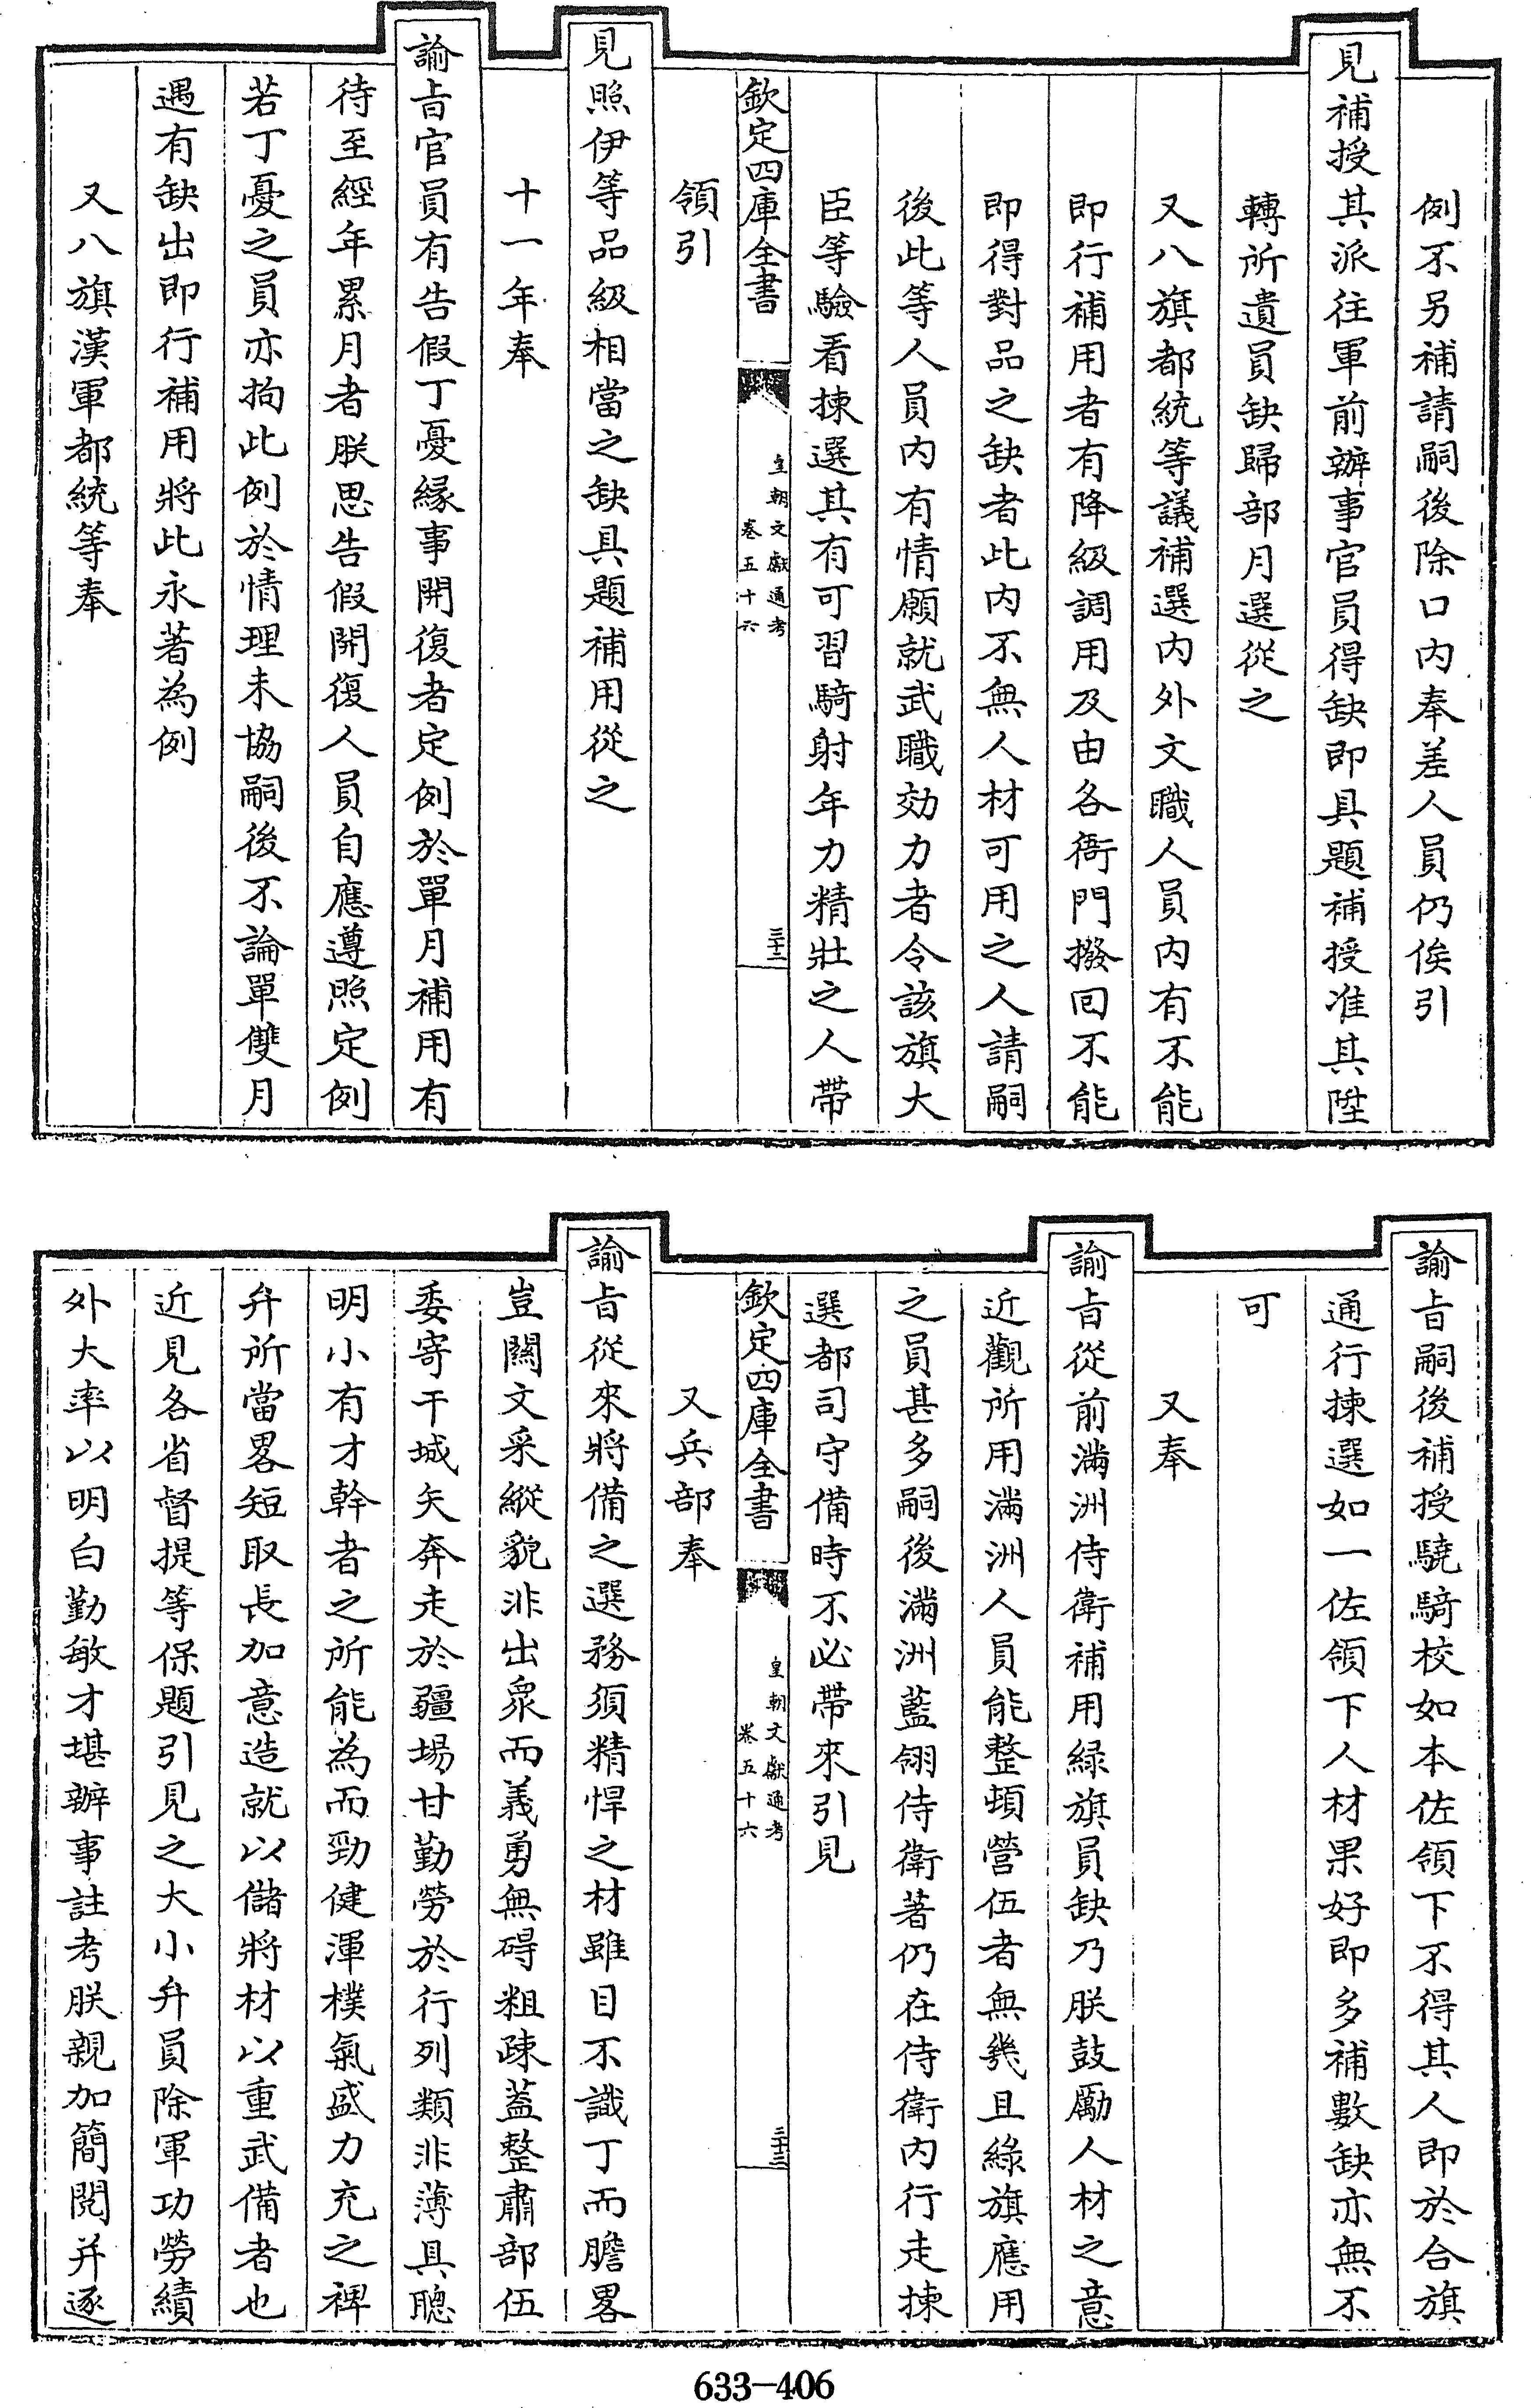 例不另補請嗣後除口内奉差人員仍俟引
見補授其派往軍前辦事官員得缺即具題補授准其陞
轉所遺員缺歸部月選從之
又八旗都統等議補選内外文職人員内有不能
即行補用者有降級調用及由各衙門撥回不能
即得對品之缺者此内不無人材可用之人請嗣
後此等人員内有情願就武職効力者令該旗大
臣等驗看揀選其有可習騎射年力精壯之人帶
欽定四庫全書
皇朝文獻通考
卷五十六
三十二
領引
見照伊等品級相當之缺具題補用從之
十一年奉
諭旨官員有告假丁憂緣事開復者定例於單月補用有
待至經年累月者朕思告假開復人員自應遵照定例
若丁憂之員亦拘此例於情理未協嗣後不論單雙月
遇有缺出即行補用將此永著為例
又八旗漢軍都統等奉
諭旨嗣後補授驍騎校如本佐領下不得其人即於合旗
通行揀選如一佐領下人材果好即多補數缺亦無不
可
又奉
諭旨從前滿洲侍衛補用緑旗員缺乃朕鼓勵人材之意
近觀所用滿洲人員能整頓營伍者無幾且綠旗應用
之員甚多嗣後滿洲藍翎侍衛著仍在侍衛内行走揀
選都司守備時不必帶來引見
欽定四庫全書
皇朝文獻通考
卷五十六
三十三
又兵部奉
諭旨從來將備之選務須精悍之材雖目不識丁而膽畧
豈關文采縱貌非出衆而義勇無碍粗疎蓋整肅部伍
委寄干城矢奔走於疆埸甘勤勞於行列類非薄具聰
明小有才幹者之所能為而勁健渾樸氣盛力充之裨
弁所當畧短取長加意造就以儲將材以重武備者也
近見各省督提等保題引見之大小弁員除軍功勞績
外大率以明白勤敏才堪辦事註考朕親加簡閱并逐
633-406